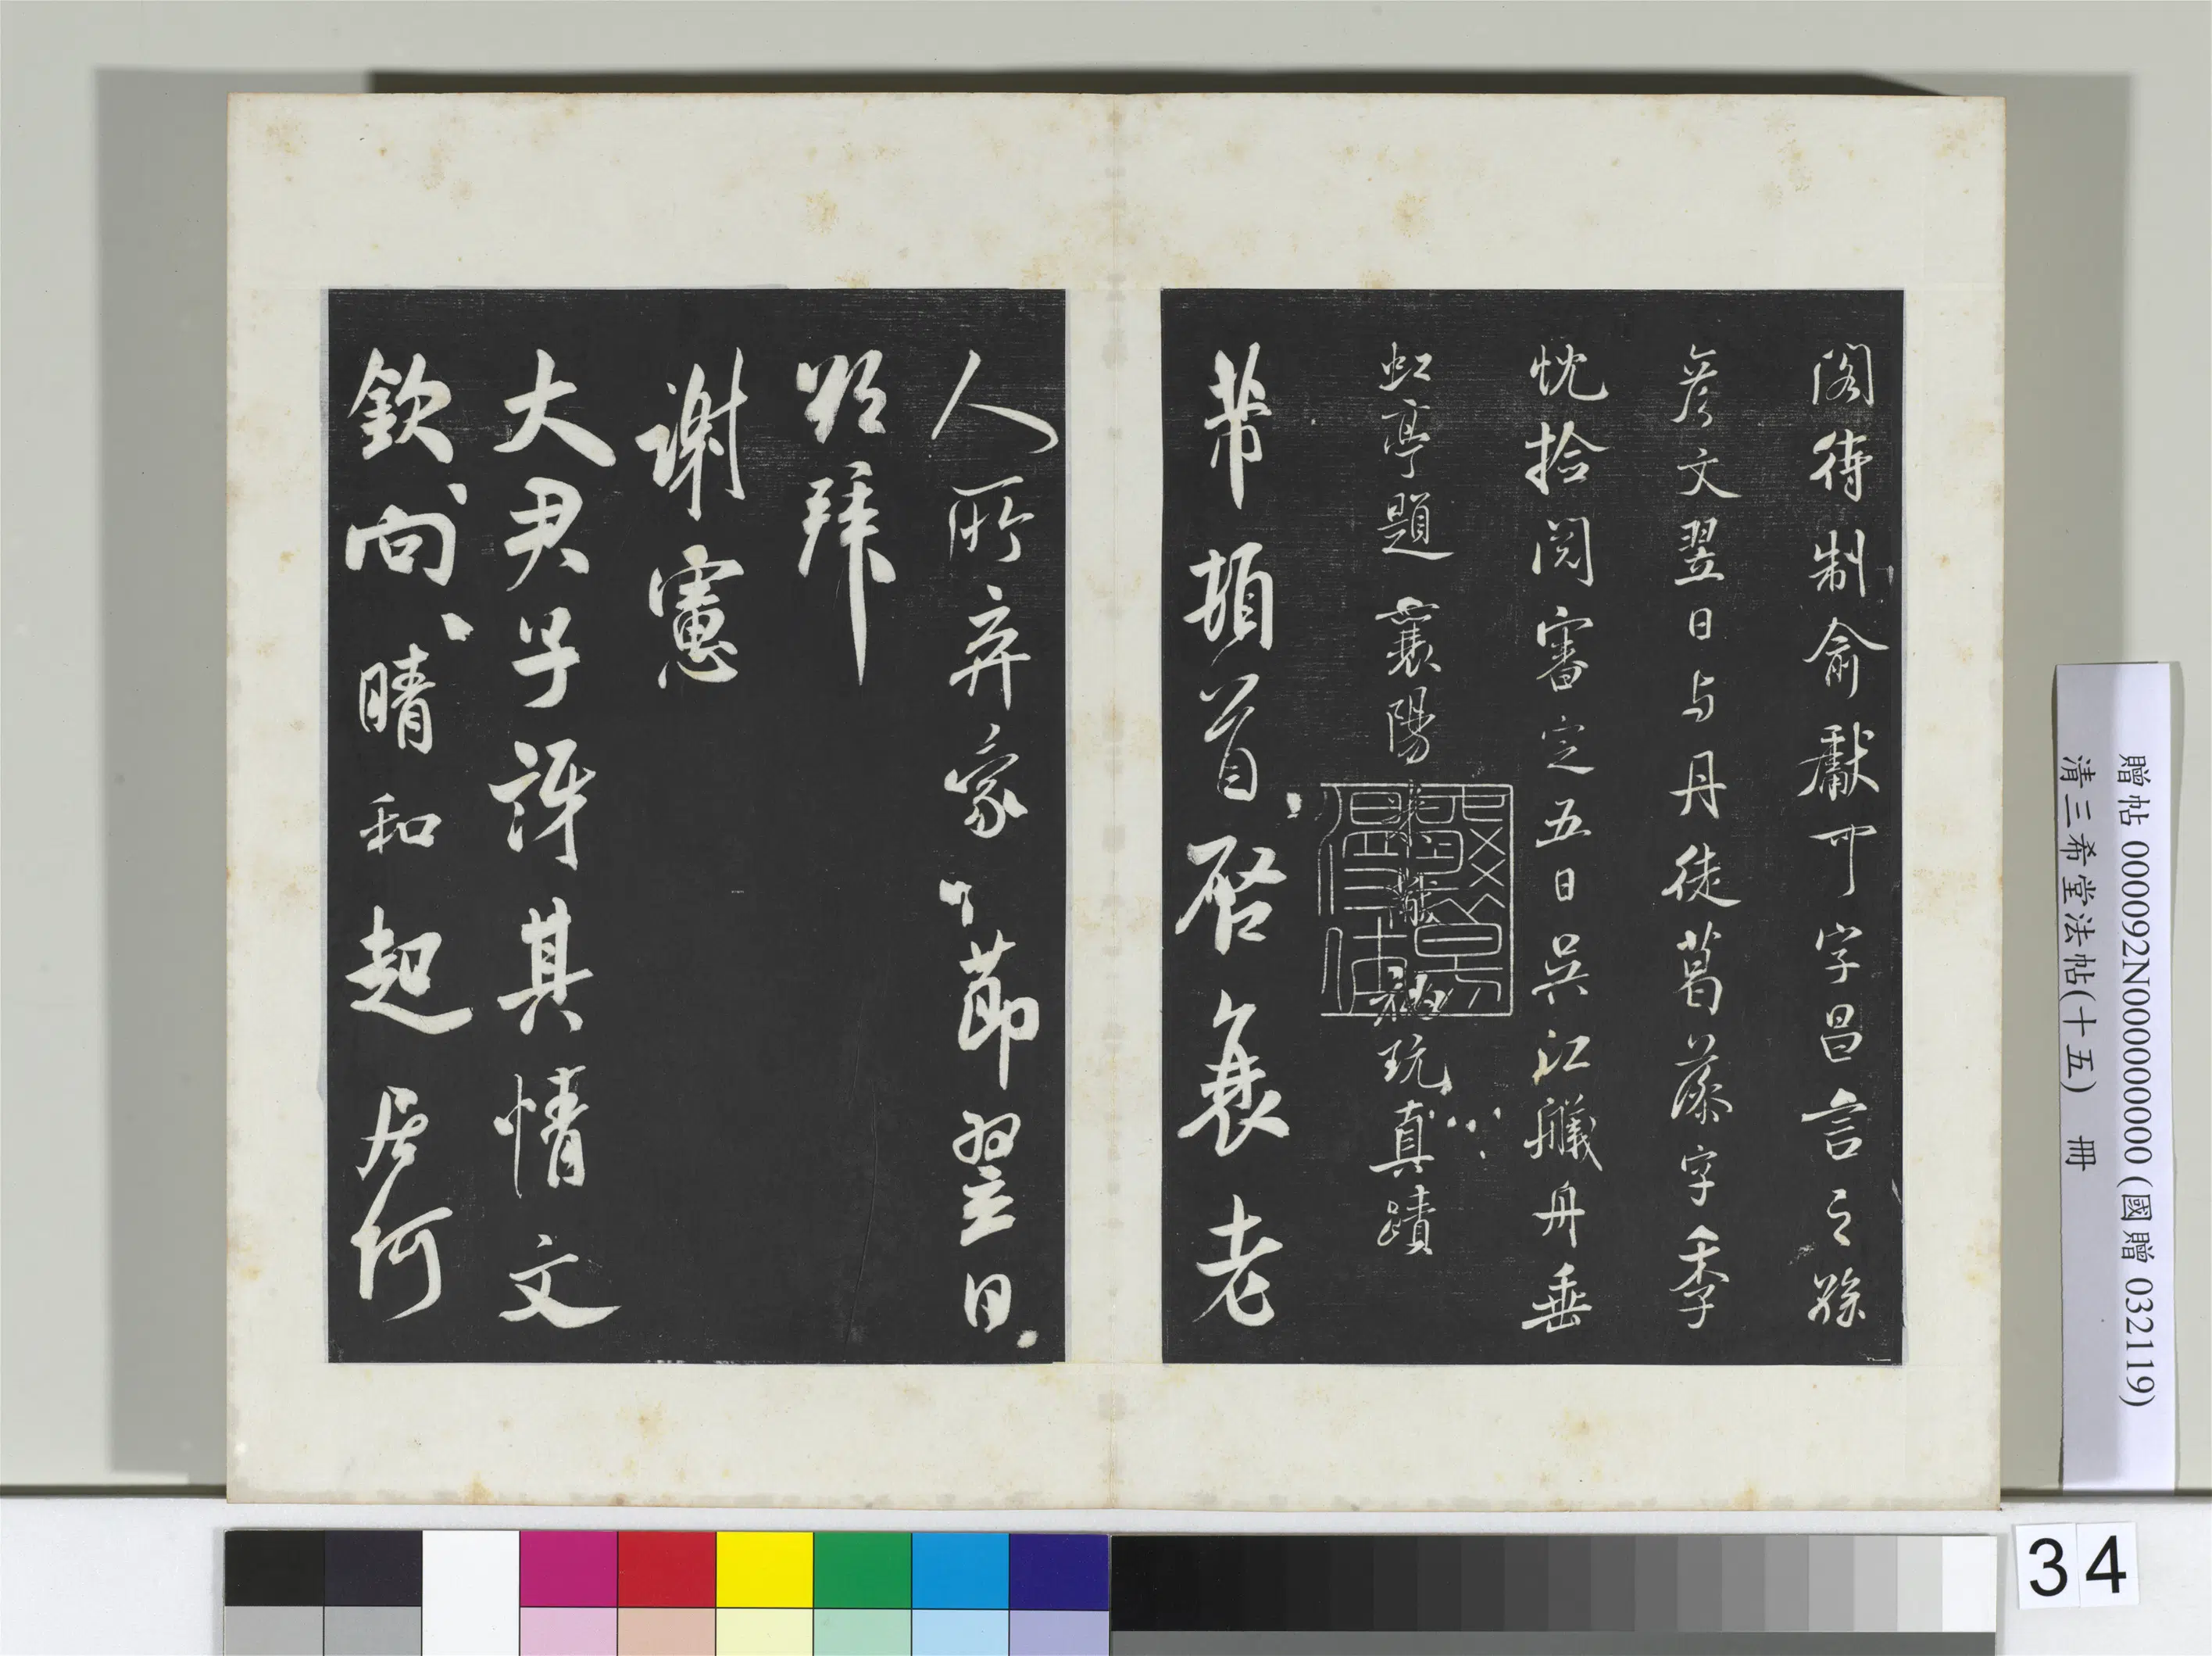 閣待制俞獻可字昌言之孫
彥文翌日与丹徒葛藻字季
忱撿閱審定五日吳江艤舟垂
虹亭題 襄陽米黻秘玩真蹟
芾頓首启衰老
人所弃 節翌日
拜
謝憲
大君子訝其情文
欽向晴和起居何
贈帖 000092N000000000 (國贈 032119)
清三希堂法帖(十五) 冊
34